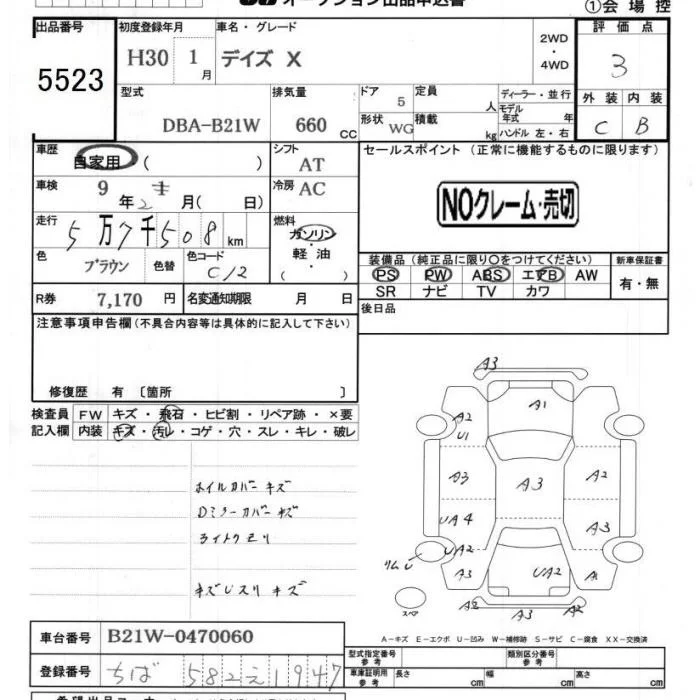 オークション出品申込書
①会場控
出品番号
5523
初度登録年月
H30 1月
車名・グレード
デイズ X
2WD・4WD
評価点
3
型式
DBA-B21W
排気量
660 CC
ドア 5
形状 WG
定員 人
積載 kg
ディーラー・並行
モデル年式 年
ハンドル 左・右
外装 内装
C B
車歴 自家用 ( )
シフト AT
車検 9年2月( 日)
冷房 AC
走行 5万7千508km
燃料 ガソリン・軽油 ( )
色 ブラウン 色替
色コード C12
R券 7,170円
名変通知期限 月 日
セールスポイント (正常に機能するものに限ります)
NOクレーム・売切
装備品 (純正品に限り○をつけてください)
PS PW ABS エアB AW
SR ナビ TV カワ
新車保証書
有・無
後日品
注意事項申告欄 (不具合内容等は具体的に記入して下さい)
修復歴 有 〔箇所 〕
検査員 FW キズ・飛石・ヒビ割・リペア跡・×要
記入欄 内装 キズ・汚レ・コゲ・穴・スレ・キレ・破レ
ホイルカバーキズ
Dミラーカバーキズ
ライトクモリ
キズUスリキズ
A3
A1
A2
U1
A3
A3
A2
UA4
A3
UA2
リムU
A3
UA2
A1
スペア
A2
A3
A2
A-キズ E-エクボ U-凹み W-補修跡 S-サビ C-腐食 XX-交換済
車台番号 B21W-0470060
登録番号 ちば 582 え 1947
型式指定番号 参考
類別区分番号 参考
車庫証明用 参考 長さ cm 幅 cm 高さ cm